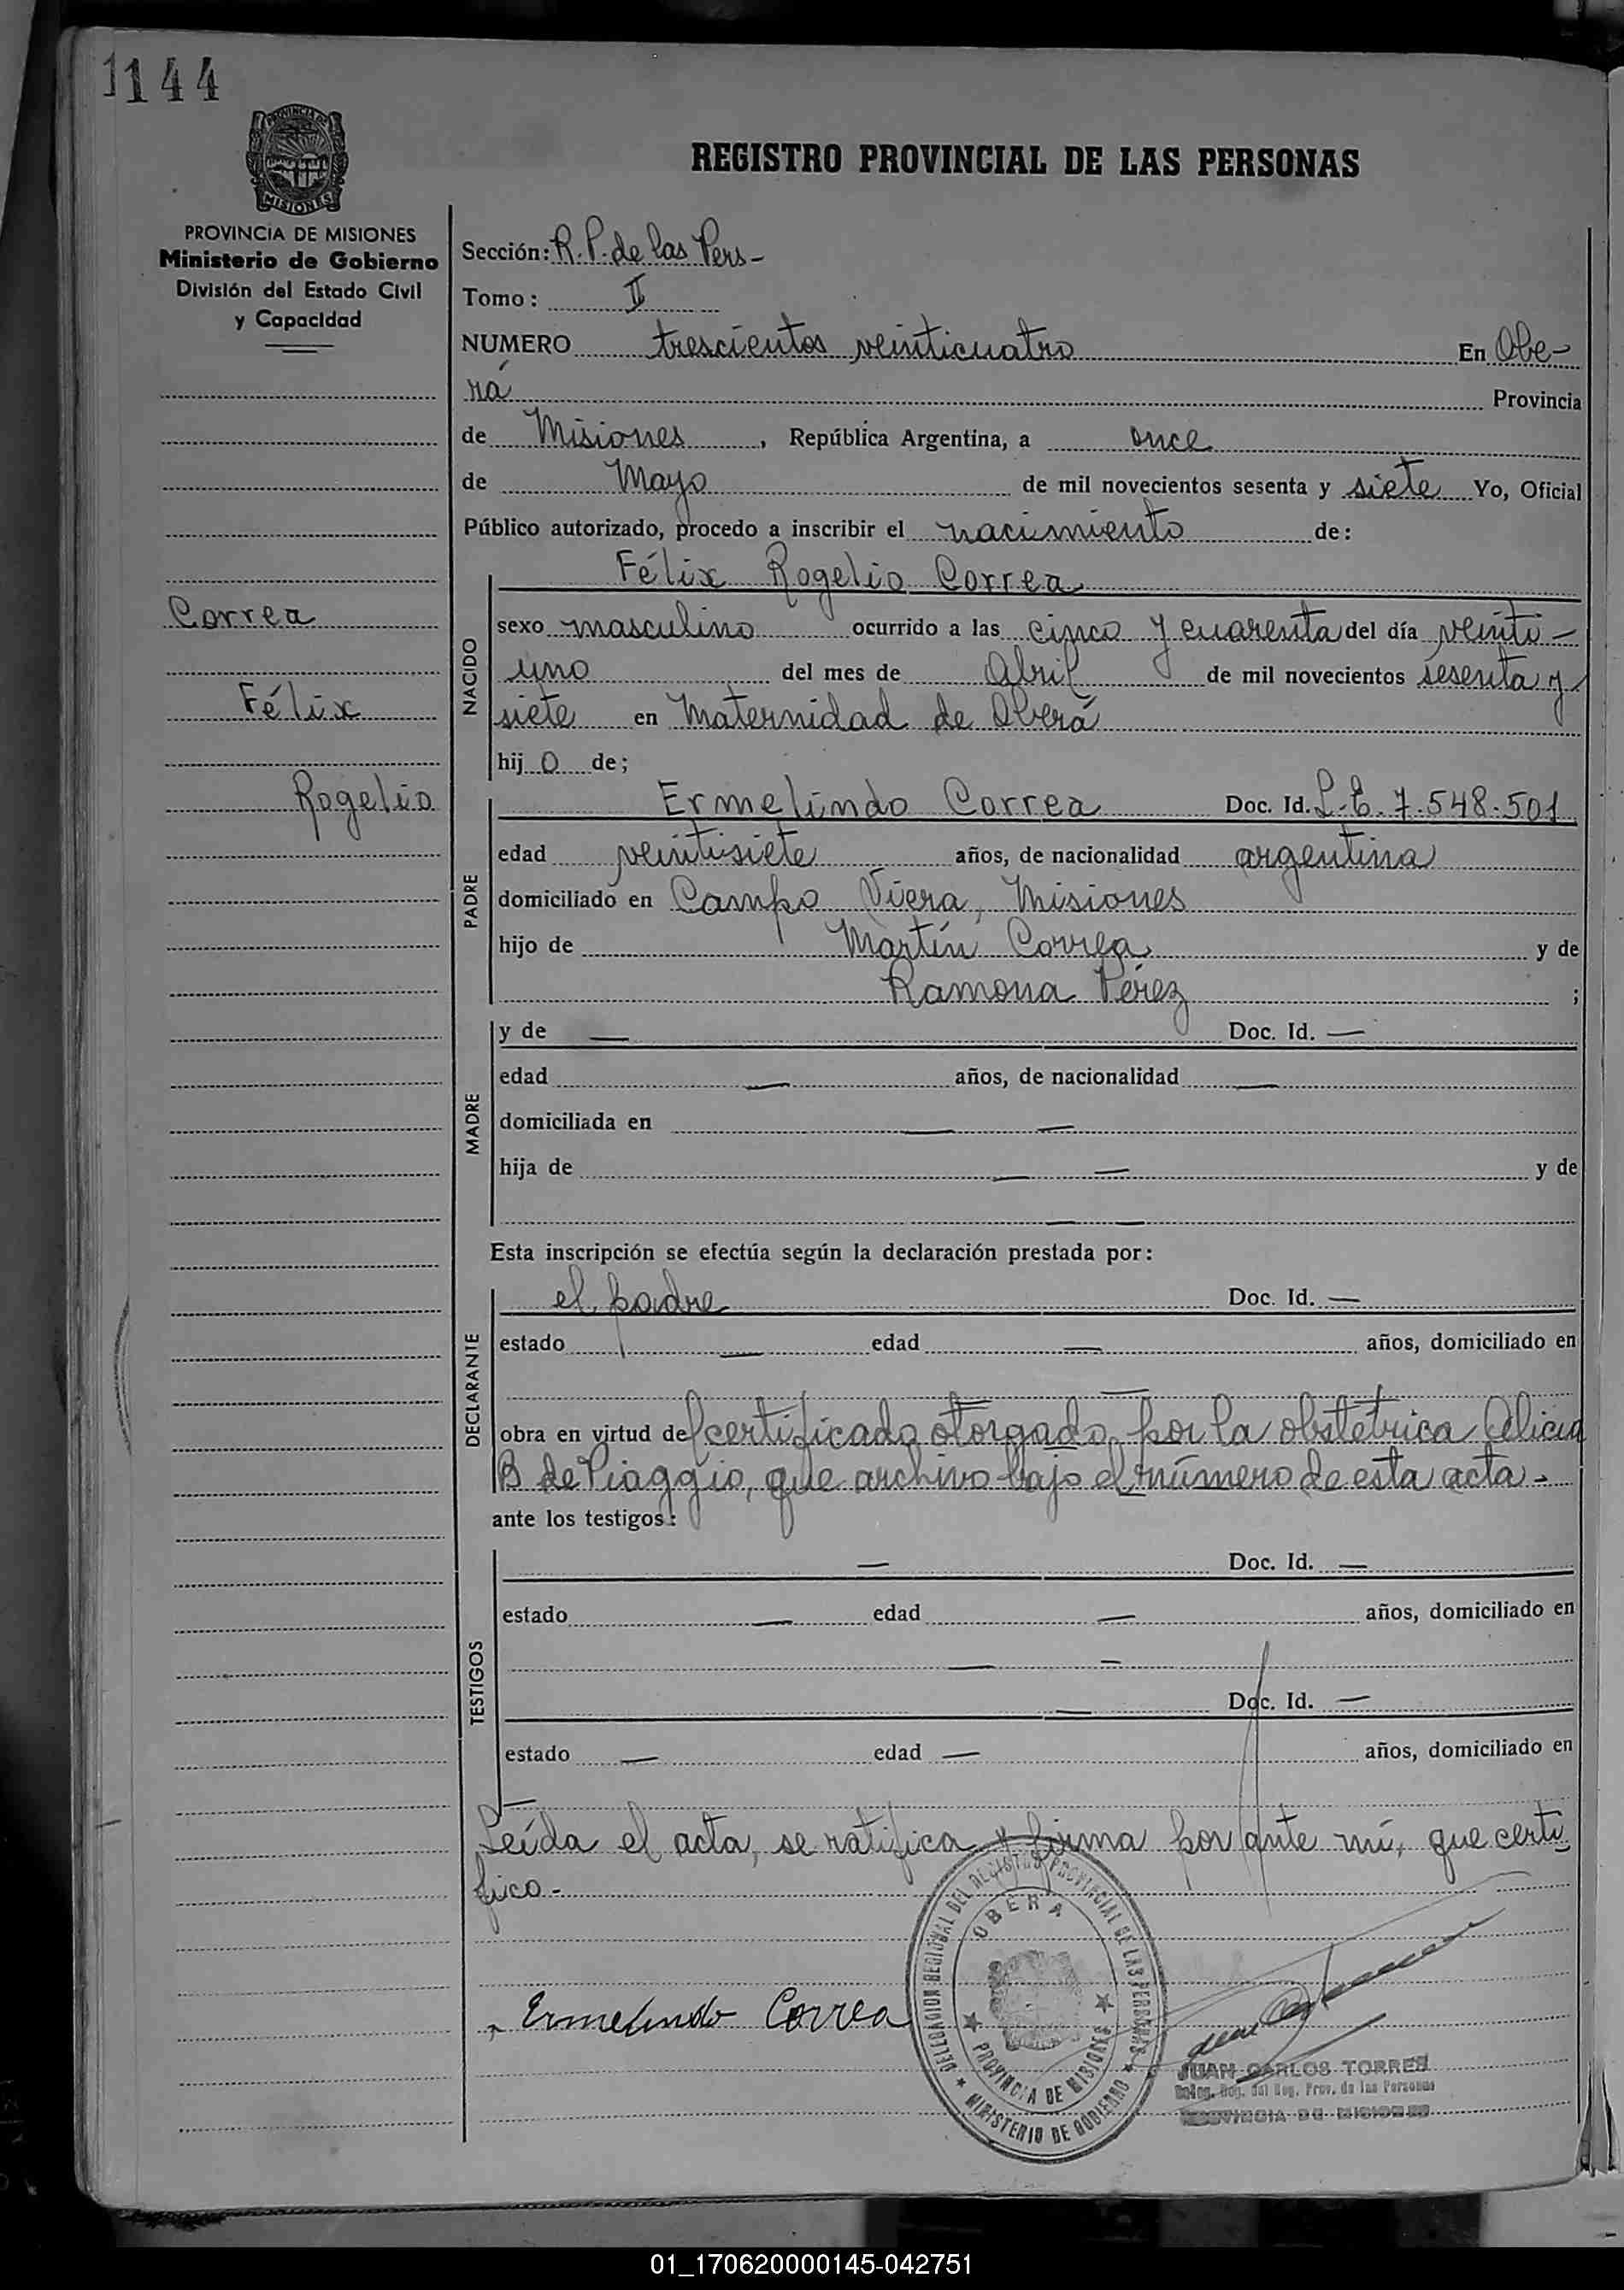 1144
REGISTRO PROVINCIAL DE LAS PERSONAS
PROVINCIA DE MISIONES
MISIONES
PROVINCIA DE MISIONES
Ministerio de Gobierno
División del Estado Civil
y Capacidad
Sección: R.P. de las Pers-
Tomo: II
NUMERO trescientos veinticuatro En Obe-
rá Provincia
de Misiones, República Argentina, a once
de Mayo de mil novecientos sesenta y siete Yo, Oficial
Público autorizado, procedo a inscribir el nacimiento de:
Félix Rogelio Correa
Correa
Félix
Rogelio
NACIDO
sexo masculino ocurrido a las cinco y cuarenta del día veinti-
uno del mes de Abril de mil novecientos sesenta y
siete en Maternidad de Oberá
hijo de;
PADRE
Ermelindo Correa Doc. Id. L.E. 7.548.501
edad veintisiete años, de nacionalidad argentina
domiciliado en Campo Viera, Misiones
hijo de Martín Correa y de
Ramona Pérez ;
MADRE
y de — Doc. Id. —
edad — años, de nacionalidad —
domiciliada en — —
hija de — — y de
— —
Esta inscripción se efectúa según la declaración prestada por:
DECLARANTE
el padre Doc. Id. —
estado — edad — años, domiciliado en
—
obra en virtud del certificado otorgado por la obstétrica Alicia
B de Piaggio, que archivo bajo el número de esta acta-
ante los testigos:
TESTIGOS
— Doc. Id. —
estado — edad — años, domiciliado en
— —
— Doc. Id. —
estado — edad — años, domiciliado en
—
Leída el acta, se ratifica y firma por ante mí, que certi
fico-
Ermelindo Correa
DELEGACION REGIONAL DEL REGISTRO PROVINCIAL DE LAS PERSONAS
OBERA
PROVINCIA DE MISIONES
MINISTERIO DE GOBIERNO
JUAN CARLOS TORRES
Deleg. Reg. del Reg. Prov. de las Personas
PROVINCIA DE MISIONES
01_170620000145-042751